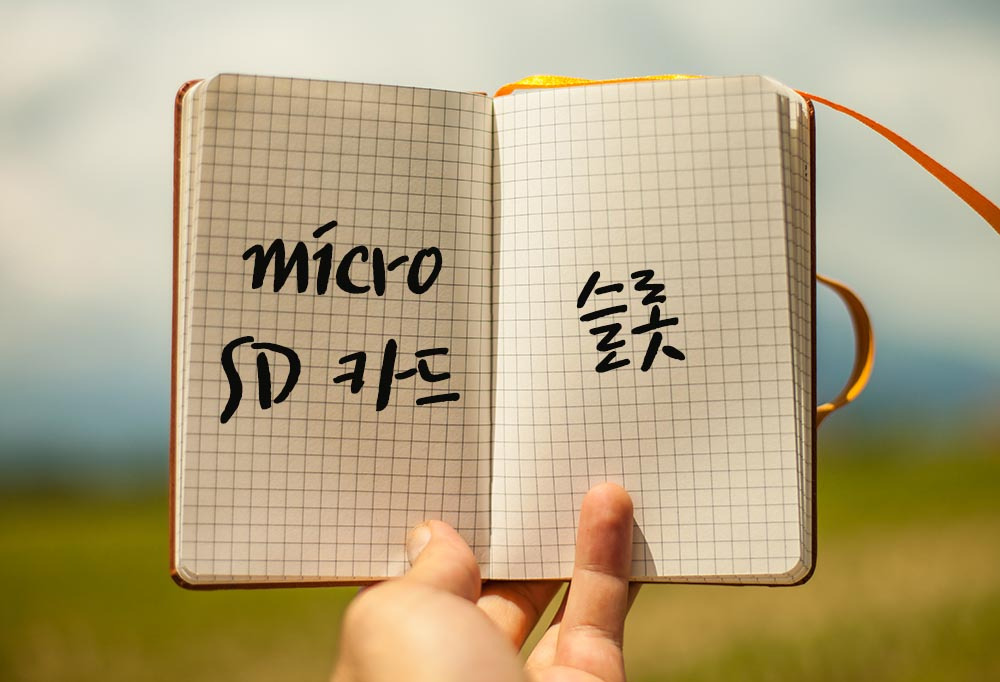 micro
SD 카드
슬롯